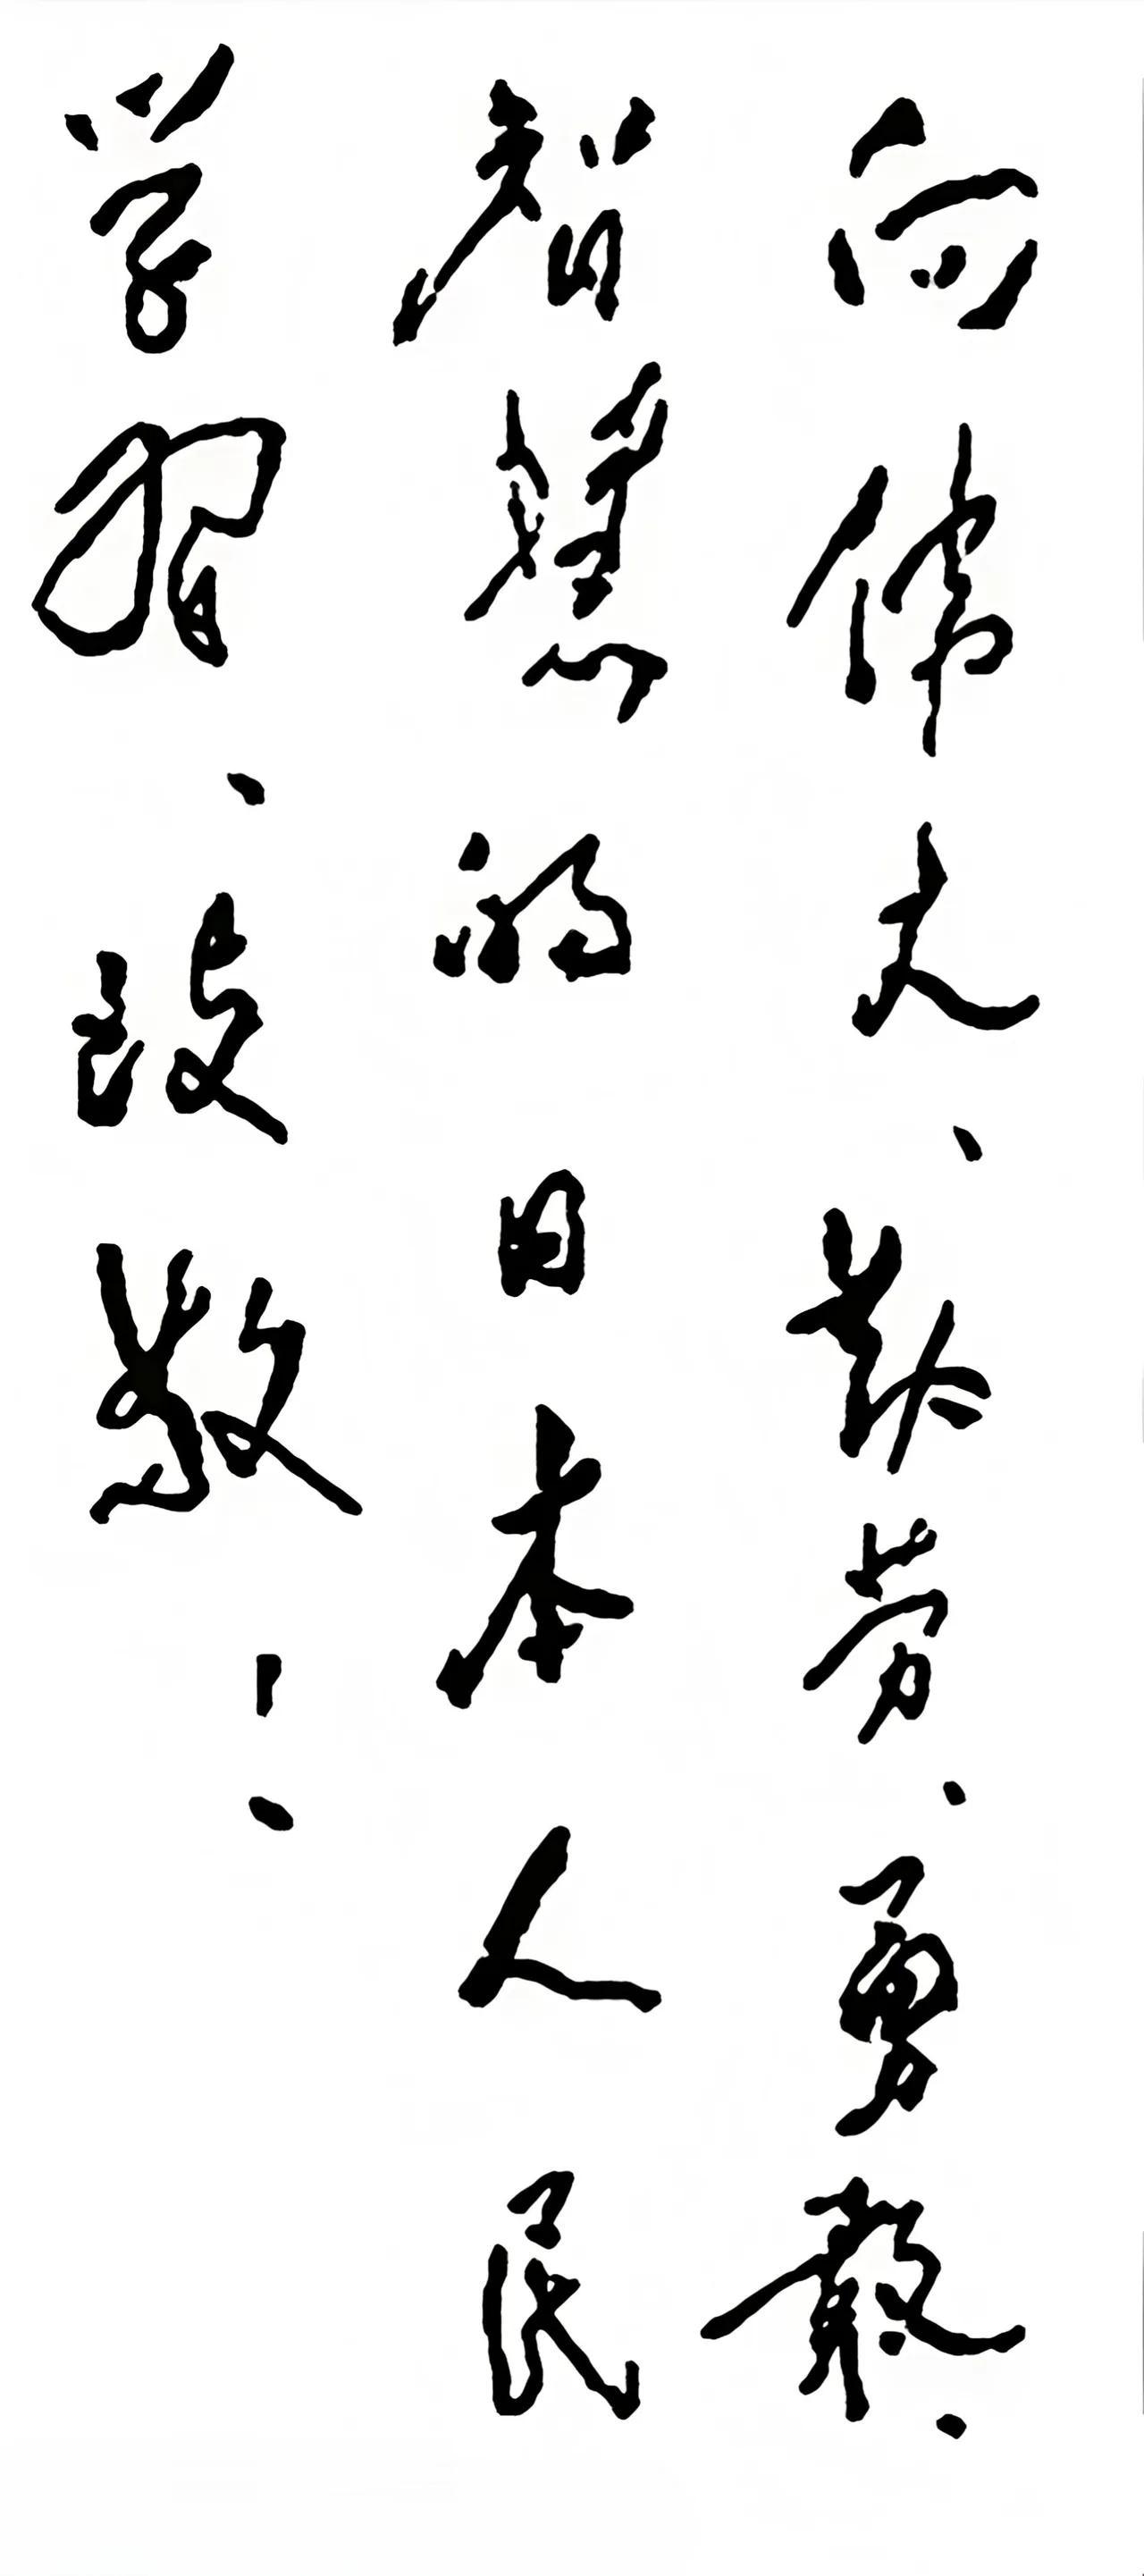 向伟大、勤劳、勇敢、
智慧的日本人民
学习、致敬！